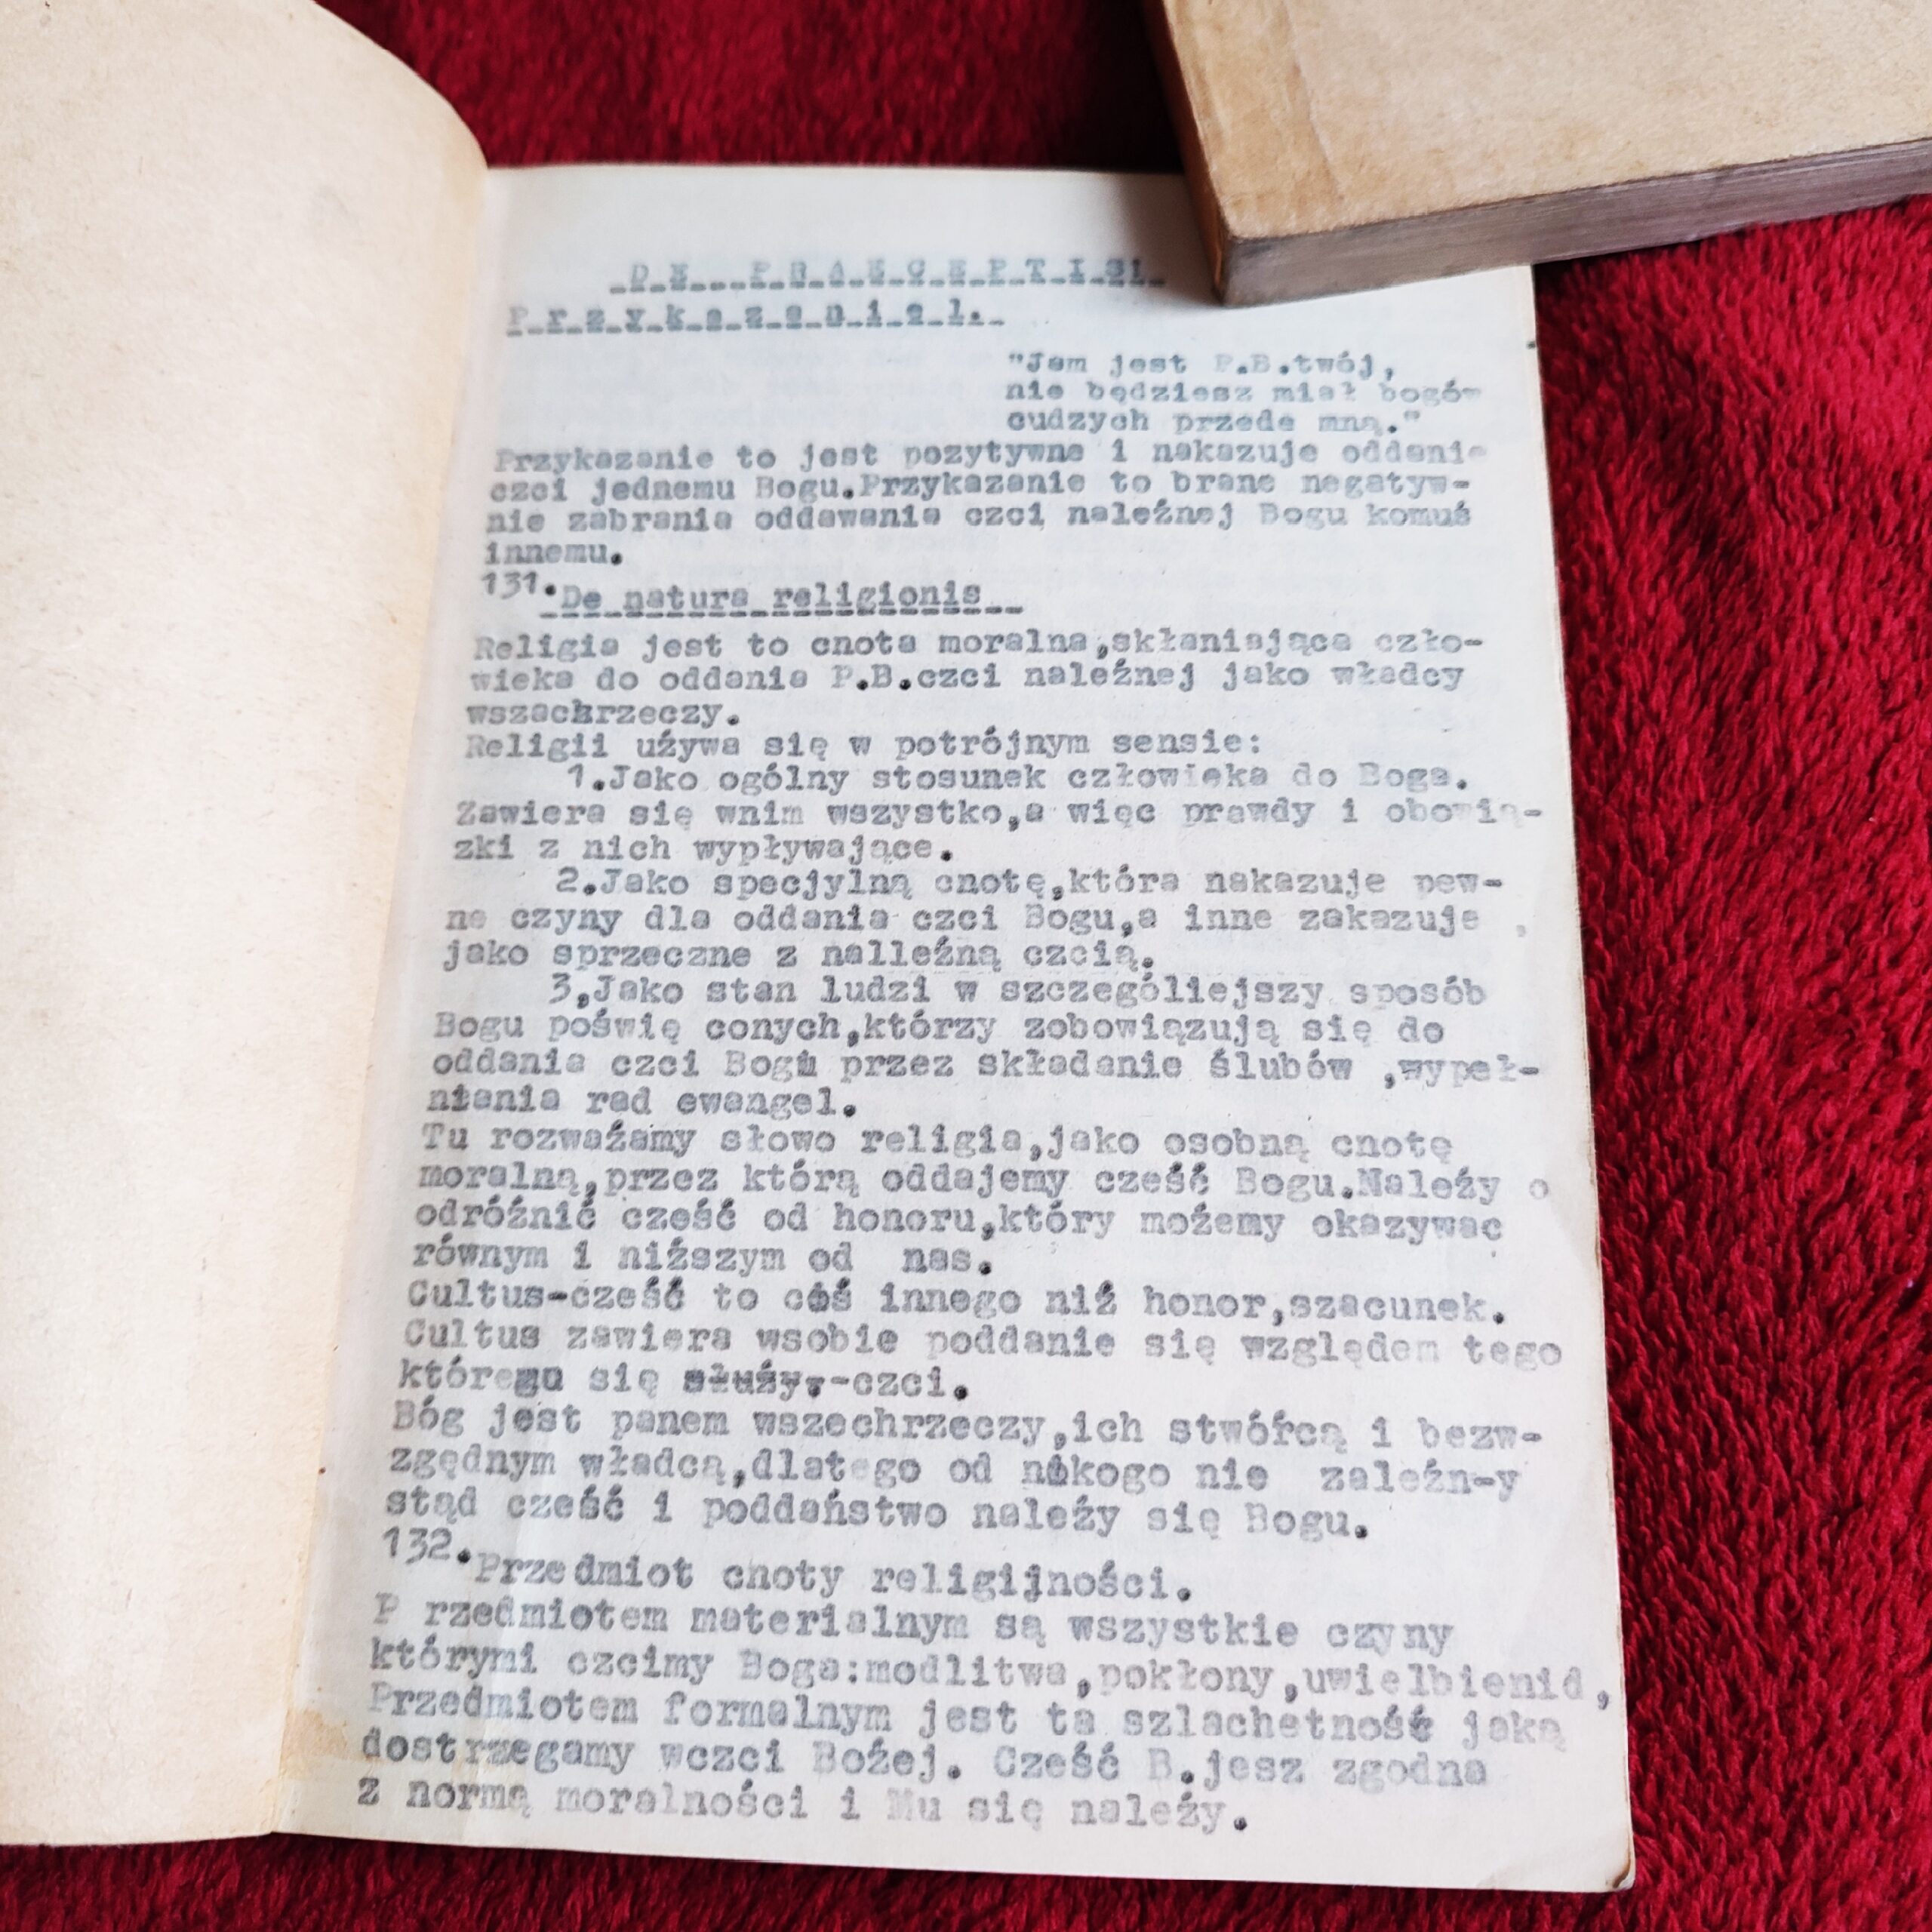 DE PRAECEPTIS1
Przykazanie1.
"Jam jest P.B.twój,
nie będziesz miał bogów
cudzych przede mną."
Przykazanie to jest pozytywne i nakazuje oddanie
czci jednemu Bogu.Przykazanie to brane negatyw-
nie zabrania oddawania czci należnej Bogu komuś
innemu.
131.De natura religionis
Religia jest to cnota moralna,skłaniająca czło-
wieka do oddania P.B.czci należnej jako władcy
wszachrzeczy.
Religii używa się w potrójnym sensie:
1.Jako ogólny stosunek człowieka do Boga.
Zawiera się wnim wszystko,a więc prawdy i obowią-
zki z nich wypływające.
2.Jako specjylną cnotę,która nakazuje pew-
ne czyny dla oddania czci Bogu,a inne zakazuje ,
jako sprzeczne z nalleżną czcią.
3,Jako stan ludzi w szczególiejszy sposób
Bogu poświę conych,którzy zobowiązują się do
oddania czci Bogu przez składanie ślubów ,wypeł-
niania rad ewangel.
Tu rozważamy słowo religia,jako osobną cnotę
moralną,przez którą oddajemy cześć Bogu.Należy o
odróżnić cześć od honoru,który możemy okazywac
równym i niższym od nas.
Cultus-cześć to coś innego niż honor,szacunek.
Cultus zawiera wsobie poddanie się względem tego
któremu się służy,-czci.
Bóg jest panem wszechrzeczy,ich stwórcą i bezw-
zgędnym władcą,dlatego od nikogo nie zależn-y
stąd cześć i poddaństwo należy się Bogu.
132.Przedmiot cnoty religijności.
P rzedmiotem materialnym są wszystkie czyny
którymi czcimy Boga:modlitwa,pokłony,uwielbienid,
Przedmiotem formalnym jest ta szlachetność jaką
dostrzegamy wczci Bożej. Cześć B.jesz zgodna
z normą moralności i Mu się należy.